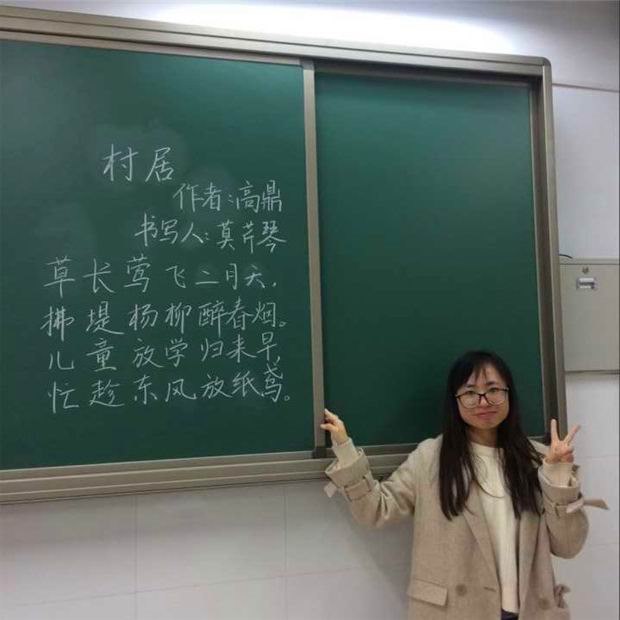 村居
作者:高鼎
书写人:莫芹琴
草长莺飞二月天,
拂堤杨柳醉春烟。
儿童放学归来早,
忙趁东风放纸鸢。